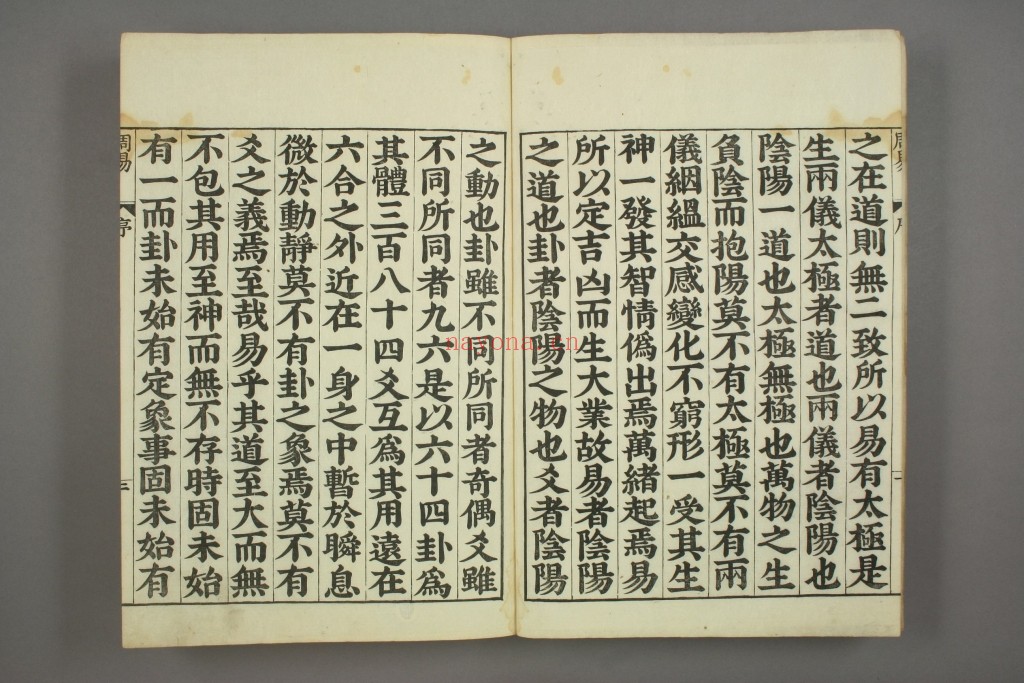 之在道則無二致所以易有太極是
生兩儀太極者道也兩儀者陰陽也
陰陽一道也太極無極也萬物之生
負陰而抱陽莫不有太極莫不有兩
儀絪縕交感變化不窮形一受其生
神一發其智情僞出焉萬緒起焉易
所以定吉凶而生大業故易者陰陽
之道也卦者陰陽之物也爻者陰陽
之動也卦雖不同所同者奇偶爻雖
不同所同者九六是以六十四卦爲
其體三百八十四爻互爲其用遠在
六合之外近在一身之中暫於瞬息
微於動靜莫不有卦之象焉莫不有
爻之義焉至哉易乎其道至大而無
不包其用至神而無不存時固未始
有一而卦未始有定象事固未始有
周易 序
nayona.cn